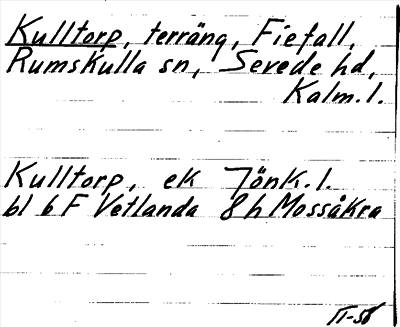 Kulltorp, terräng, Fiefall,
Rumskulla sn, Sevede hd,
Kalm. l.
Kulltorp, ek Jönk. l.
bl 6 F Vetlanda 8 h Mossåkra